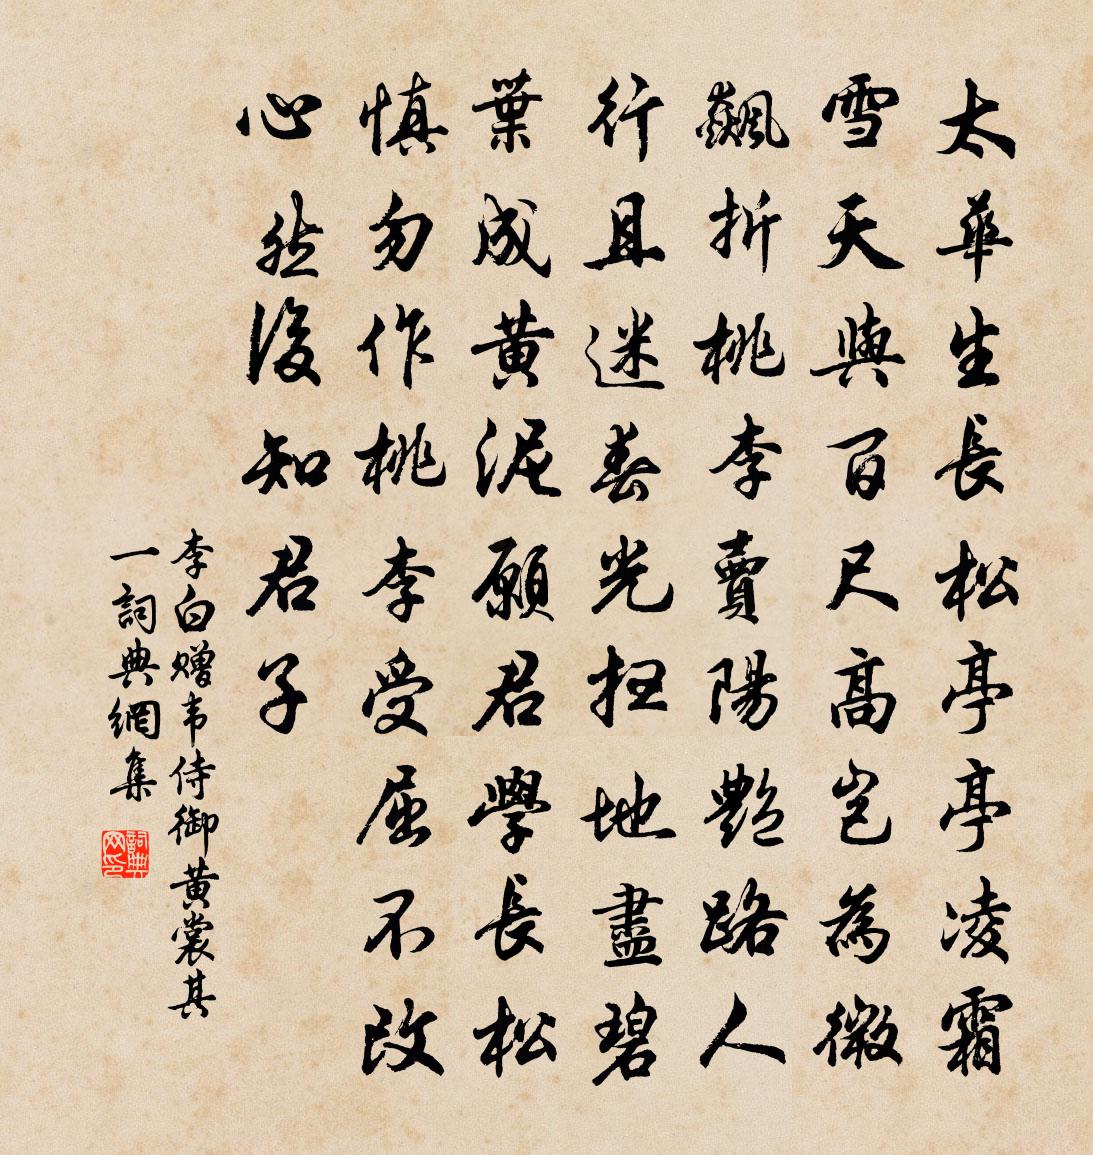 太華生長松亭亭凌霜
雪天與百尺高豈為微
飆折桃李賣陽艷路人
行且迷春光掃地盡碧
葉成黃泥願君學長松
慎勿作桃李受屈不改
心然後知君子
李白赠韦侍御黄裳其
一詞典網集
詞典网印